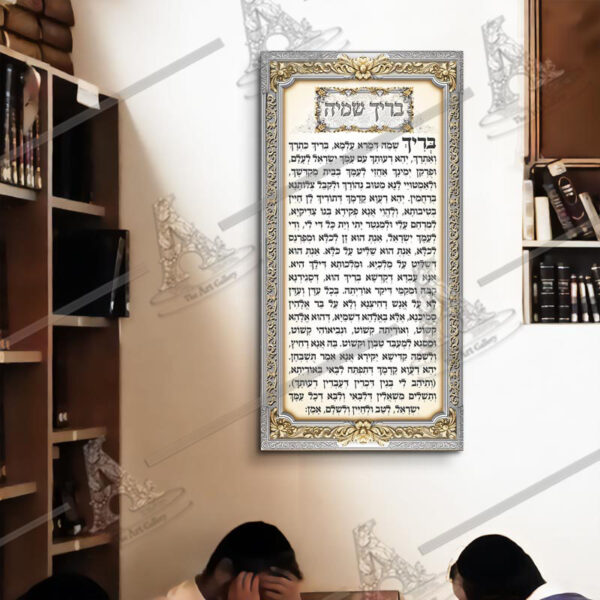 בריך שמיה
בְּרִיךְ שמה דמרא עלמא, בריך כתרך
ואתרך, יהא רעותך עם עמך ישראל לעלם,
ופרקן ימינך אחזי לעמך בבית מקדשך,
ולאמטויי לנא מטוב נהורך ולקבל צלותנא
ברחמין. יהא רעוא קדמך דתוריך לן חיין
בטיבותא, ולהוי אנא פקידא בגו צדיקיא,
למרחם עלי ולמנטר יתי וית כל די לי, ודי
לעמך ישראל, אנת הוא זן לכלא ומפרנס
לכלא, אנת הוא שליט על כלא. אנת הוא
דשליט על מלכיא. ומלכותא דילך היא.
אנא עבדא דקדשא בריך הוא, דסגידנא
קמה ומקמי דיקר אוריתה. בכל עדן ועדן
לא על אנש רחיצנא ולא על בר אלהין
סמיכנא, אלא באלהא דשמיא, דהוא אלהא
קשוט, ואוריתה קשוט, ונביאוהי קשוט,
ומסגא למעבד טבון וקשוט. בה אנא רחיץ,
ולשמה קדישא יקירא אנא אמר תשבחן.
יהא רעוא קדמך דתפתח לבאי באוריתא,
(ותיהב לי בנין דכרין דעבדין רעותך),
ותשלים משאלין דלבאי ולבא דכל עמך
ישראל, לטב ולחיין ולשלם, אמן:
The Art Gallery
The Art Gallery
The Art Gallery